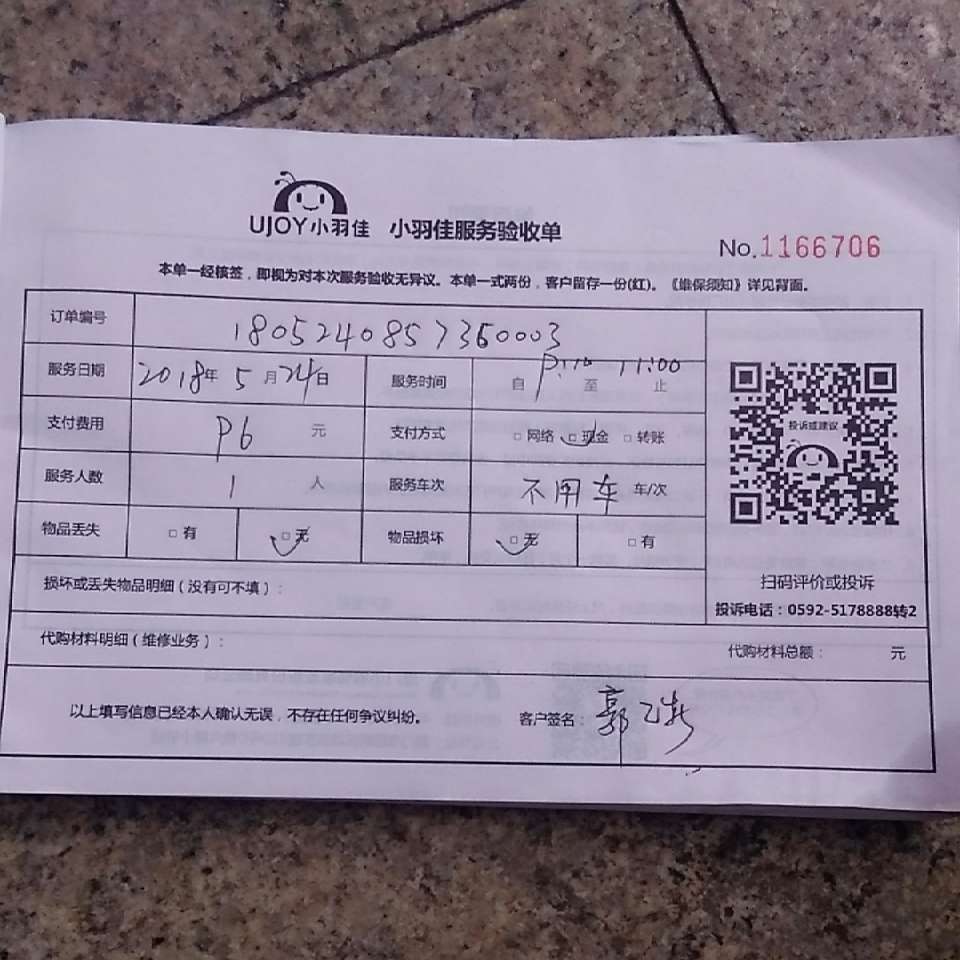 UJOY小羽佳 小羽佳服务验收单
No.1166706
本单一经核签，即视为对本次服务验收无异议。本单一式两份，客户留存一份(红)。《维保须知》详见背面。
订单编号 1805240857360003
服务日期 2018年 5月24日 服务时间 自 至 11:00 止
支付费用 P6 元 支付方式 □网络 □现金 □转账
投诉或建议
服务人数 1 人 服务车次 不用车 车/次
物品丢失 □有 □无 物品损坏 □无 □有
损坏或丢失物品明细（没有可不填）：
扫码评价或投诉
投诉电话：0592-5178888转2
代购材料明细（维修业务）： 代购材料总额： 元
以上填写信息已经本人确认无误，不存在任何争议纠纷。 客户签名：郭